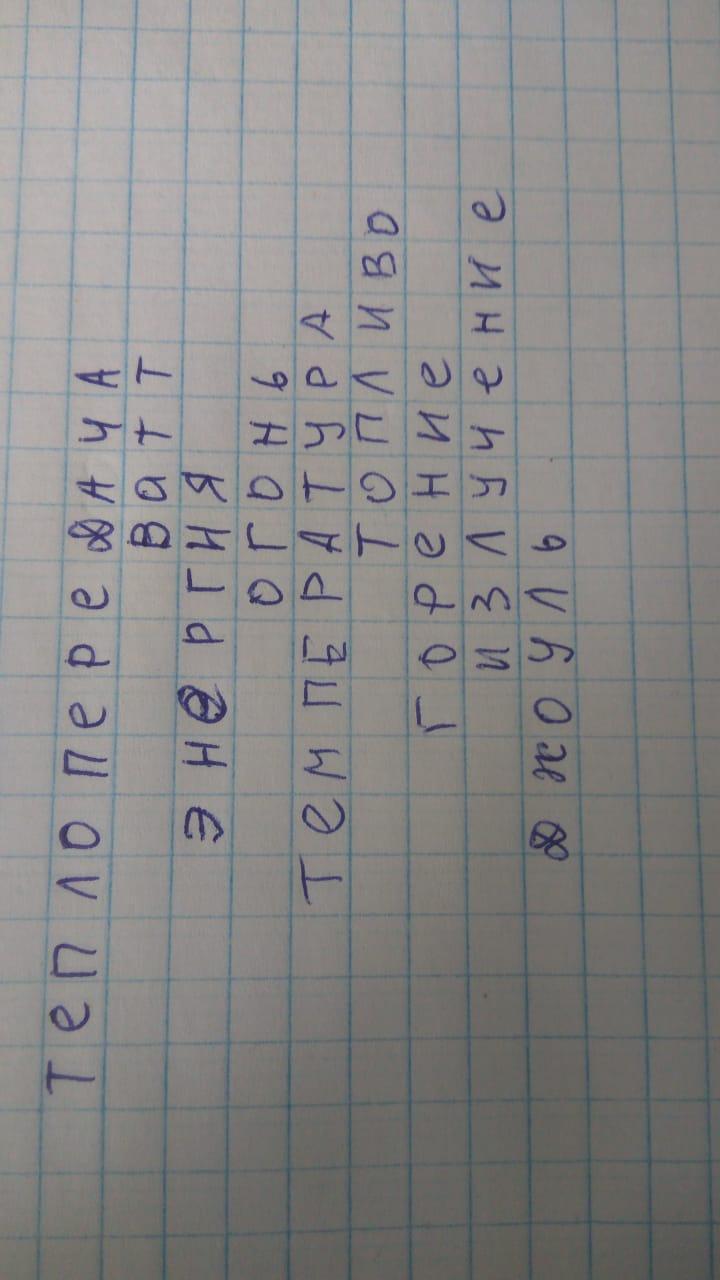 ТеПлОПеРедАЧА
ВаТТ
ЭНеРГИЯ
ОГОНЬ
ТеМПЕРАТУРА
ТОПЛИВО
ГОРеНИе
ИЗЛУЧеНИе
ДЖОУЛЬ